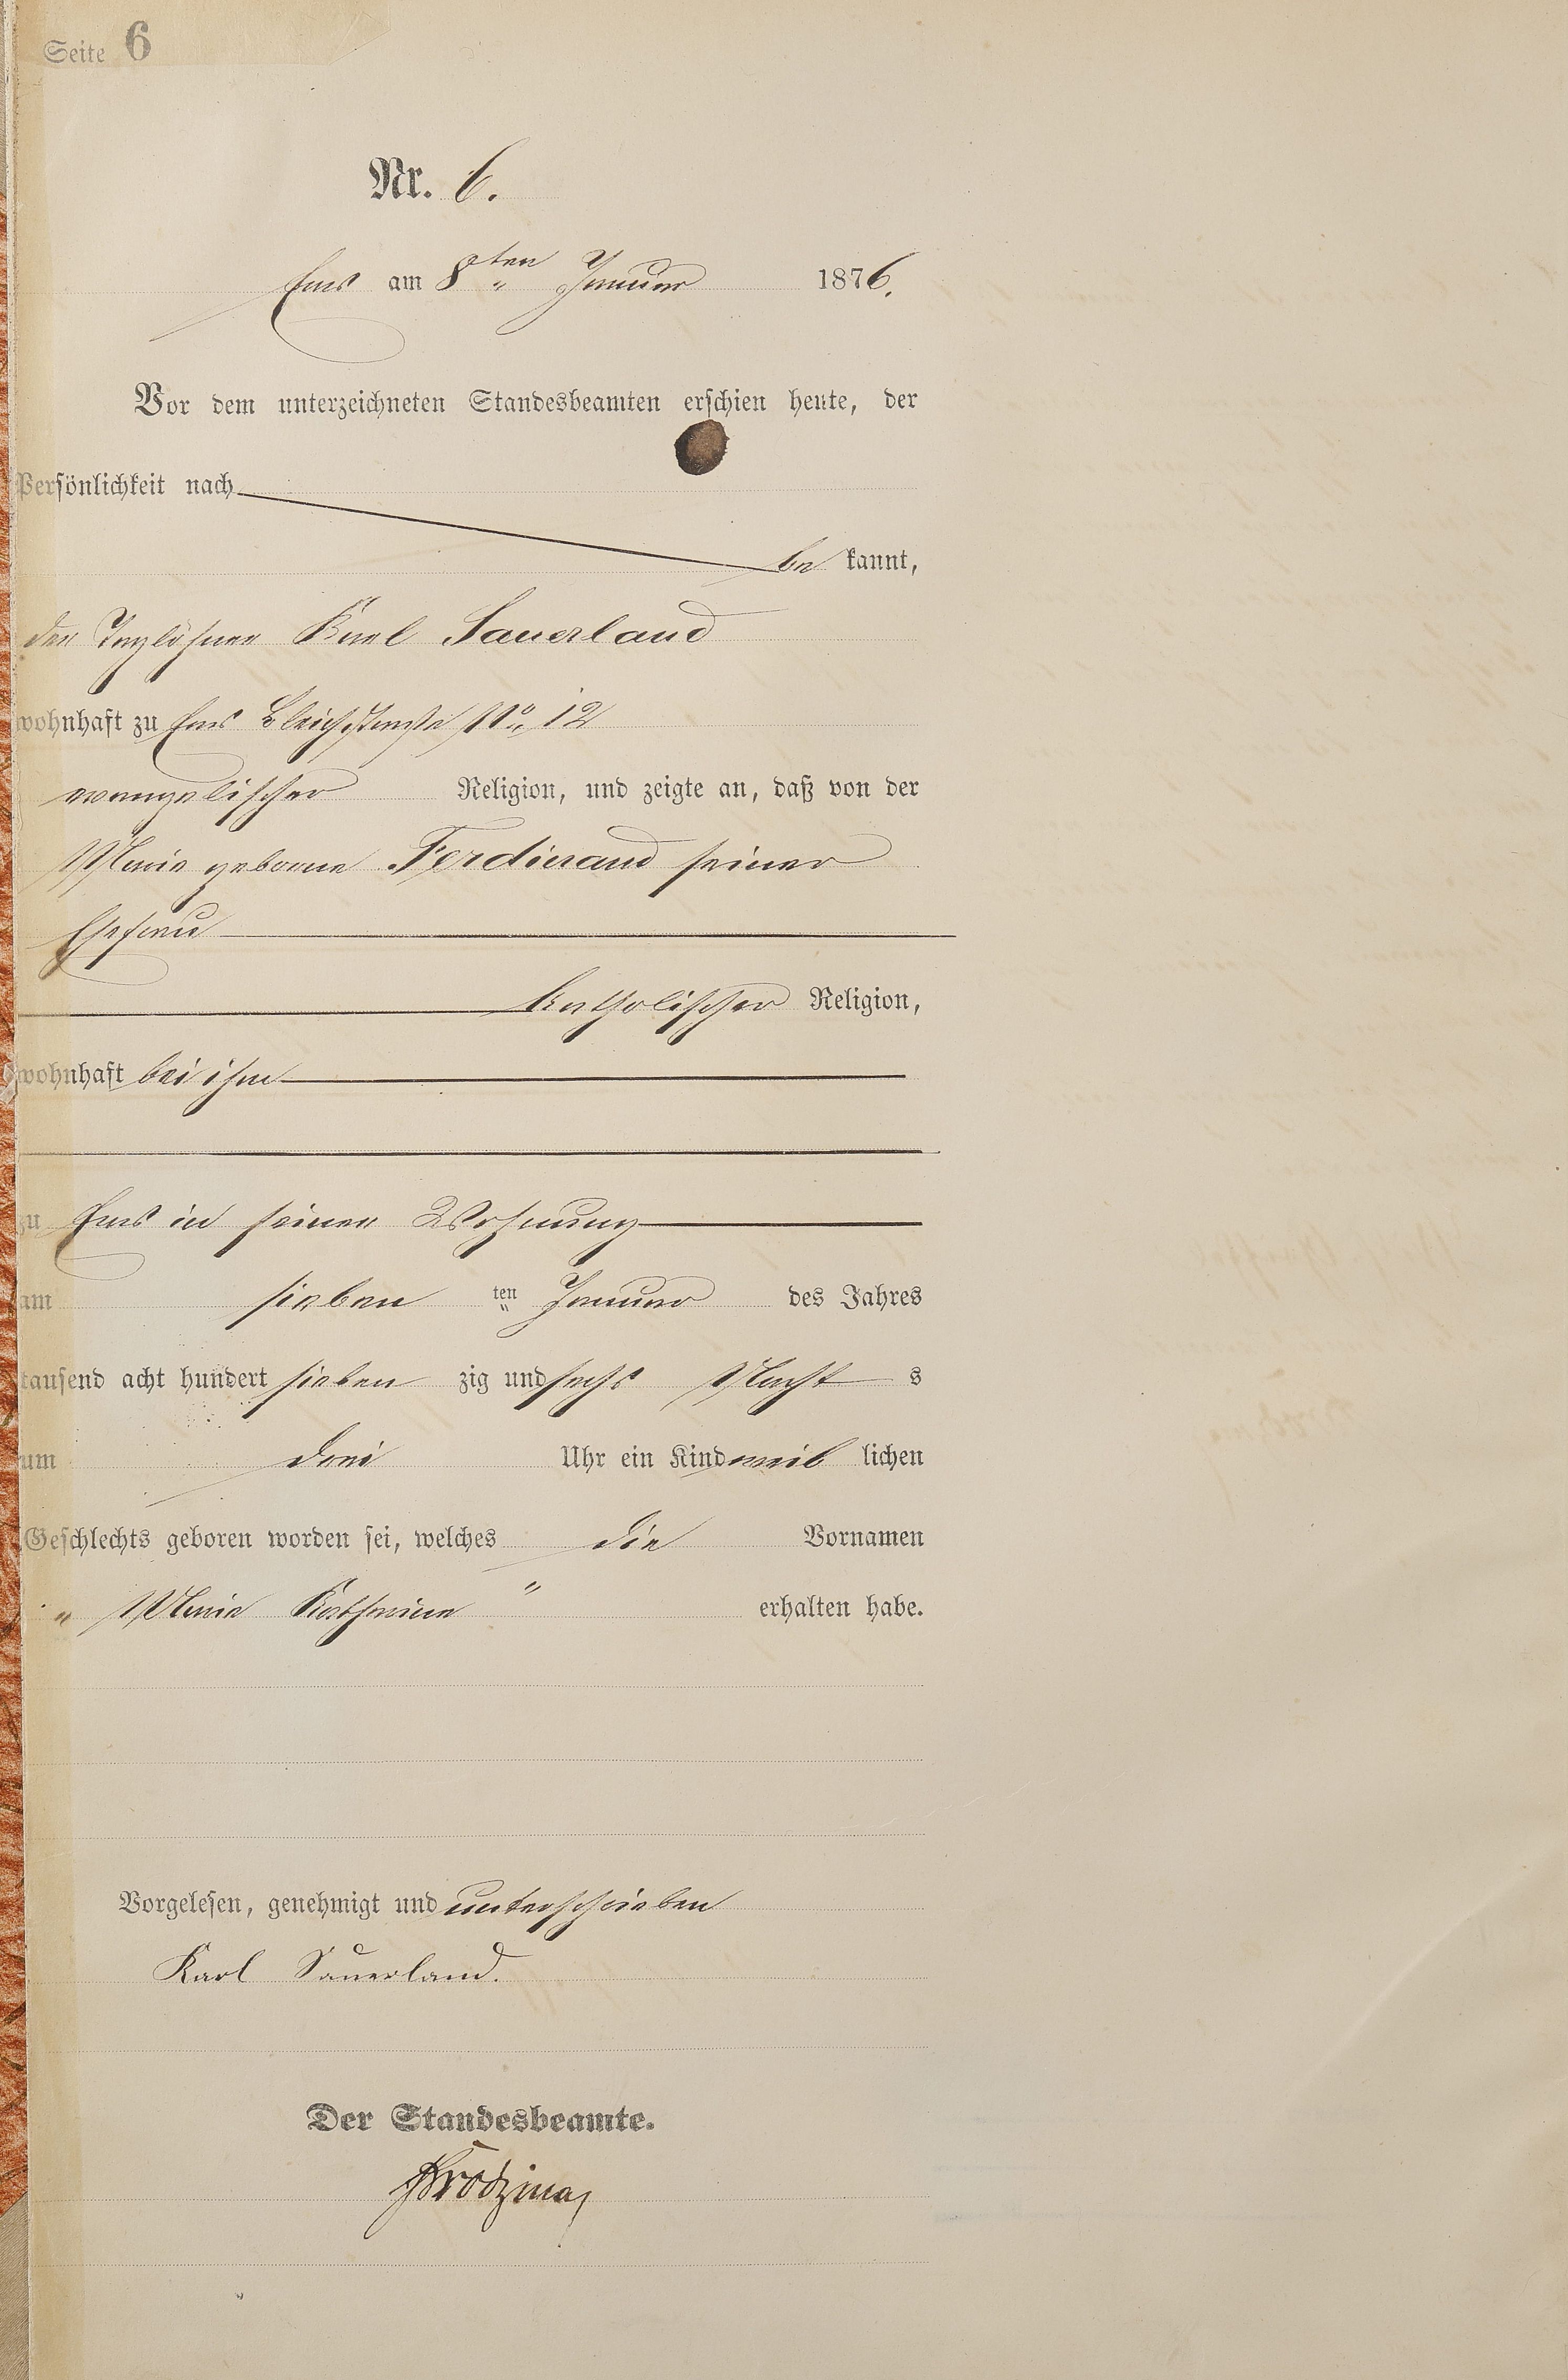 Seite 6
Nr. 6.
Ems am 8ten Januar 1876.
Vor dem unterzeichneten Standesbeamten erschien heute, der
Persönlichkeit nach
be kannt,
der Taglöhner Karl Sauerland
wohnhaft zu Ems Bleichstraße No. 12
evangelischer Religion, und zeigte an, daß von der
Marie geborne Ferdinand seiner
Ehefrau
katholischer Religion,
wohnhaft bei ihm
zu Ems in seiner Wohnung
am sieben ten Januar des Jahres
tausend acht hundert sieben zig und sechs Nacht s
um drei Uhr ein Kind weib lichen
Geschlechts geboren worden sei, welches die Vornamen
" Maria Katharina " erhalten habe.
Vorgelesen, genehmigt und unterschrieben
Karl Sauerland.
Der Standesbeamte.